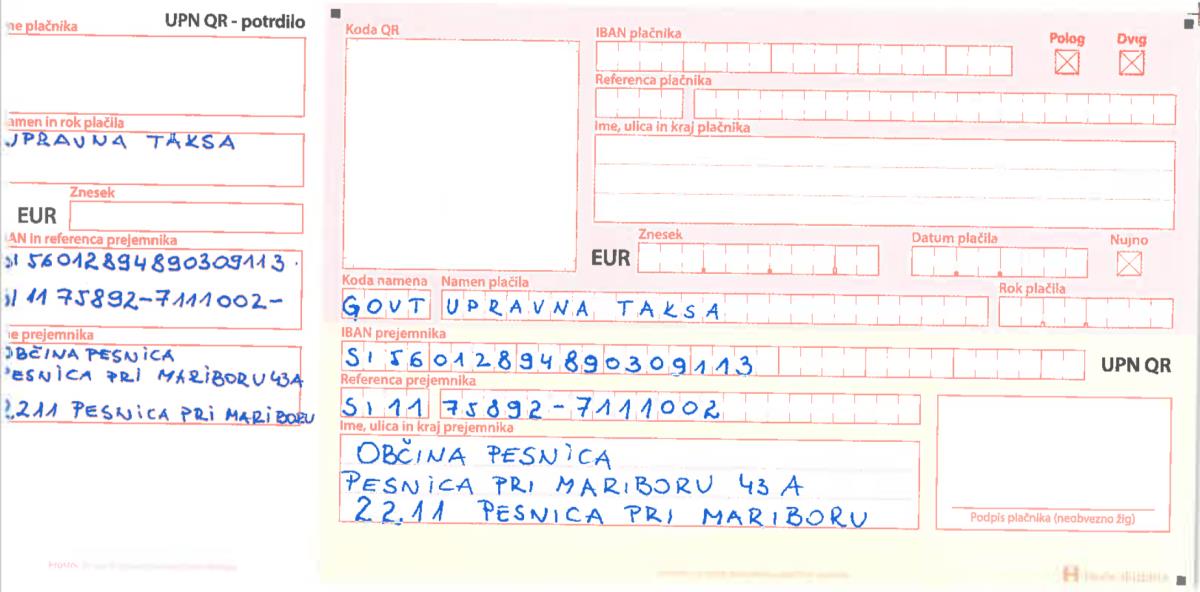 UPN QR - potrdilo
ne plačnika
amen in rok plačila
UPRAVNA TAKSA
Znesek
EUR
AN in referenca prejemnika
SI 56012894890309113
SI 11 75892-7111002-
e prejemnika
OBČINA PESNICA
PESNICA PRI MARIBORU 43A
2211 PESNICA PRI MARIBORU
Koda QR
IBAN plačnika
Polog Dvig
Referenca plačnika
Ime, ulica in kraj plačnika
EUR Znesek Datum plačila Nujno
Koda namena Namen plačila Rok plačila
GOVT UPRAVNA TAKSA
IBAN prejemnika
SI56012894890309113
UPN QR
Referenca prejemnika
SI11 75892-7111002
Ime, ulica in kraj prejemnika
OBČINA PESNICA
PESNICA PRI MARIBORU 43 A
22.11 PESNICA PRI MARIBORU
Podpis plačnika (neobvezno žig)